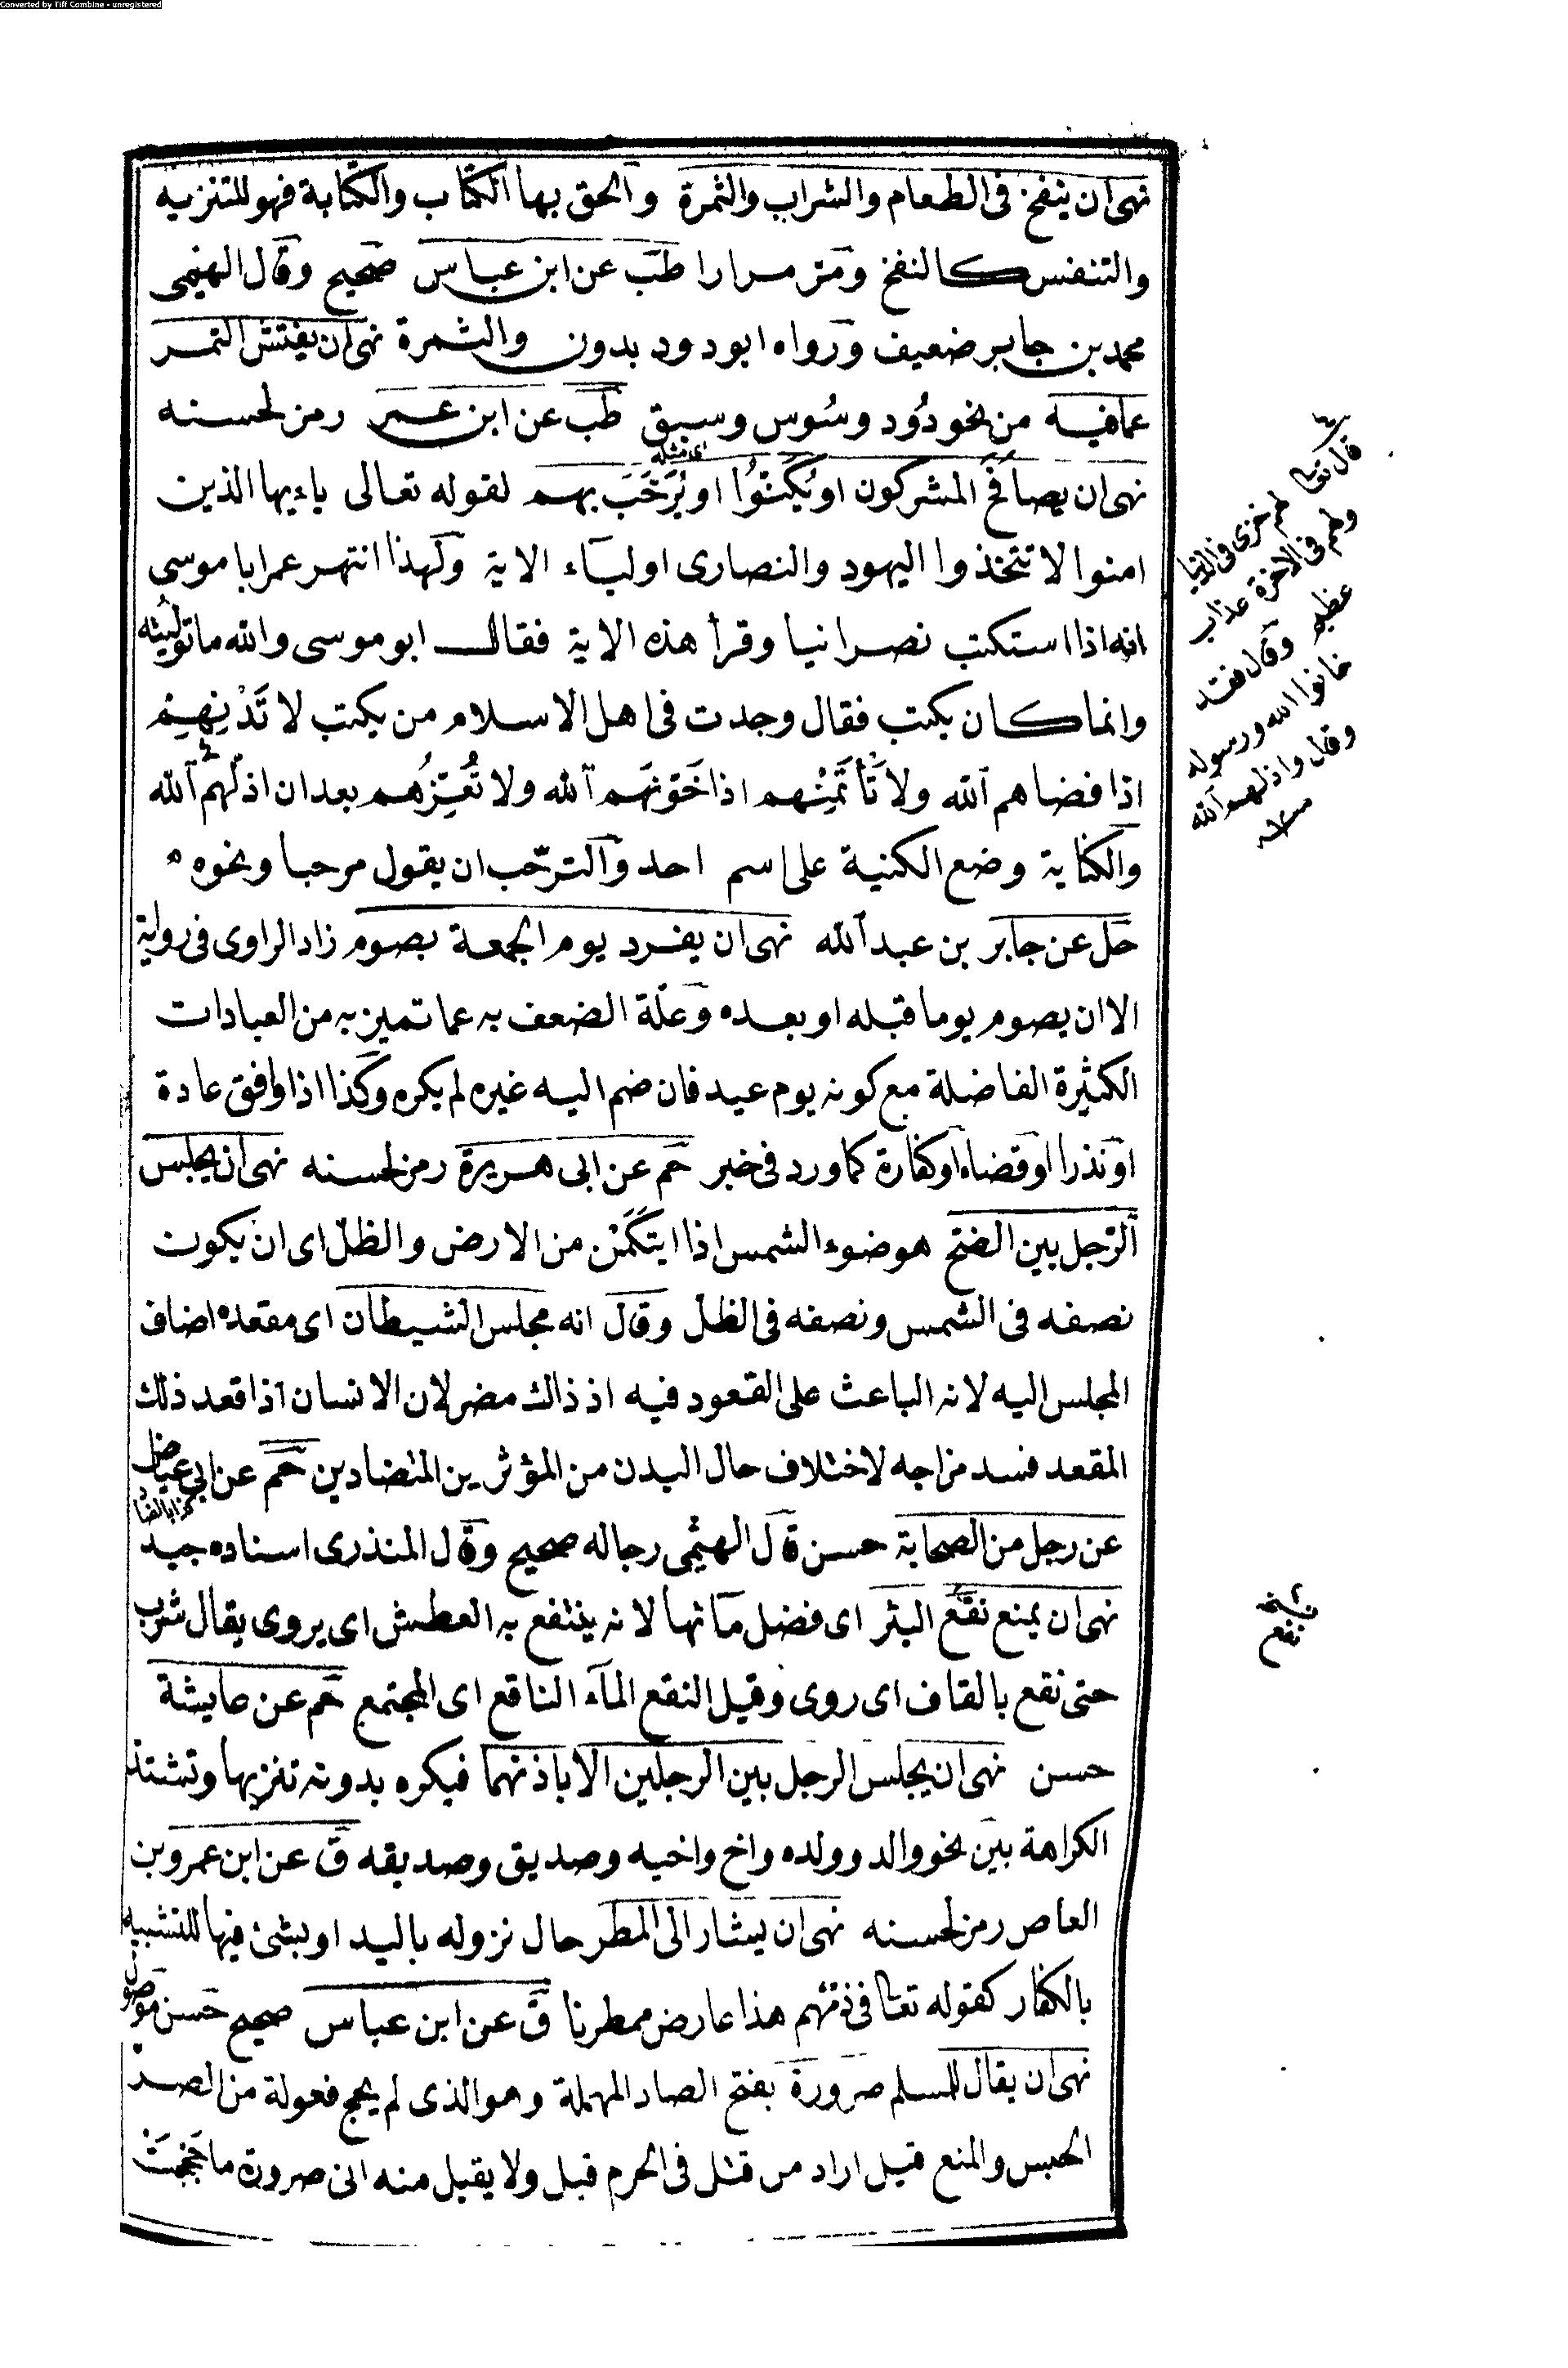 Converted by Tiff Combine - unregistered
نهى ان ينفخ فى الطعام والشراب والثمرة والحق بها الكتاب والكتابة فهو للتنزيه
والتنفس كالنفخ ومر مرارا طب عن ابن عباس صحيح وقال الهيثمى
محمد بن جابر ضعيف ورواه ابو دود بدون والثمرة نهى ان يفتش التمر
عما فيه من نحو دُود وسُوس وسبق طب عن ابن عمر رمز لحسنه
نهى ان يصافح المشركون او يُكَنّوُا او يُرَحَّبَ بهم لقوله تعالى ياءيها الذين
امنوا لا تتخذوا اليهود والنصارى اولياء الاية ولهذا انتهر عمر ابا موسى
انه اذا استكتب نصرانيا وقرأ هذه الاية فقال ابو موسى والله ما توليته
وانما كان يكتب فقال وجدت فى اهل الاسلام من يكتب لا تَدْنِهِمْ
اذا فضاهم الله ولا تَأتَمِنْهم اذا خَوّنَهم الله ولا تُعِزّهم بعد ان اذلّهم الله
والكناية وضع الكنية على اسم احد والترحّب ان يقول مرحبا ونحوه
حل عن جابر بن عبد الله نهى ان يفرد يوم الجمعة بصوم زاد الراوى فى رواية
الا ان يصوم يوما قبله او بعده وعلّة الضعف به عما تميز به من العبادات
الكثيرة الفاضلة مع كونه يوم عيد فان ضم اليه غيره لم يكره وكذا اذا وافق عادة
او نذرا او قضاء او كفارة كما ورد فى خبر حم عن ابى هريرة رمز لحسنه نهى ان يجلس
الرّجل بين الضحّ هو ضوء الشمس اذا ايتكمن من الارض والظلّ اى ان يكون
نصفه فى الشمس ونصفه فى الظل وقال انه مجلس الشيطان اى مقعده اضاف
المجلس اليه لانه الباعث على القعود فيه اذ ذاك مضر لان الانسان اذا قعد ذلك
المقعد فسد مزاجه لاختلاف حال البدن من المؤثرين المتضادين حم عن ابى عياض
عن رجل من الصحابة حسن قال الهيثمى رجاله صحيح وقال المنذرى اسناده جيد
نهى ان يمنع نقع البئر اى فضل مائها لانه ينتفع به العطش اى يروى يقال شرب
حتى نقع بالقاف اى روى وقيل النقع الماء الناقع اى المجتمع حم عن عايشة
حسن نهى ان يجلس الرجل بين الرجلين الا باذنهما فيكره بدونه تنزيها وتشتد
الكراهة بين نحو والد وولده واخ واخيه وصديق وصديقه ق عن ابن عمرو بن
العاص رمز لحسنه نهى ان يشار الى المطر حال نزوله باليد او بشئ فيها للتشبيه
بالكفار كقوله تعالى فى ذمّهم هذا عارض ممطرنا ق عن ابن عباس صحيح حسن موصول
نهى ان يقال للمسلم صرورة بفتح الصاد المهملة وهو الذى لم يحج فعولة من الصد
الحبس والمنع قيل اراد من قتل فى الحرم قبل ولا يقبل منه انى صرورة ما حَجَجتَ
اى مثله
كذا بالضا
قال تعا لهم خزى فى الدنيا
ولهم فى الاخرة عذاب
عظيم وقال فقد
خانوا الله ورسوله
وقال واذلهم الله
منه
نسخه
نفع